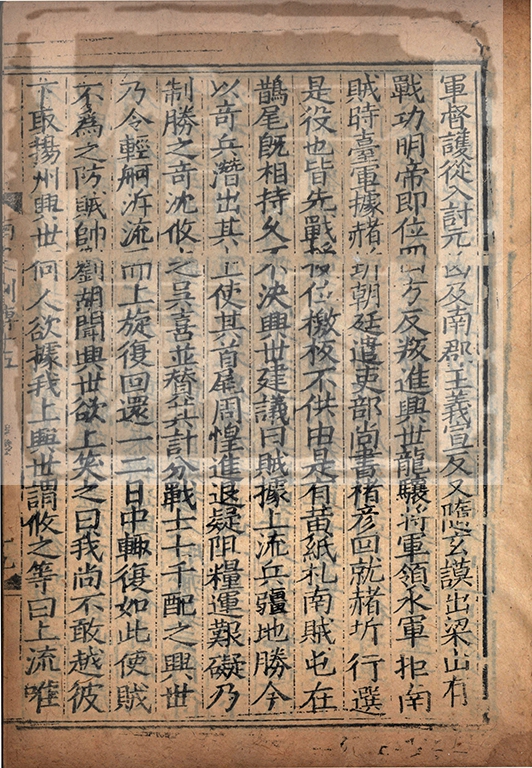 軍督護從入討元凶及南郡王義宣反又隨玄謨出梁山有
戰功明帝即位四方反叛進興世龍驤將軍領水軍拒南
賊時臺軍據赭圻朝廷遣吏部尚書褚彦回就赭圻行選
是役也皆先戰授位檄板不供由是有黄紙札南賊屯在
鵲尾既相持久不決興世建議曰賊據上流兵彊地勝今
以奇兵潛出其上使其首尾周惶進退疑阻糧運艱礙乃
制勝之奇沈攸之吳喜並贊其計分戰士七千配之興世
乃令輕舸泝流而上旋復回還一二日中輙復如此使賊
不為之防賊帥劉胡聞興世欲上笑之曰我尚不敢越彼
下取揚州興世何人欲據我上興世謂攸之等曰上流唯
列傳十五